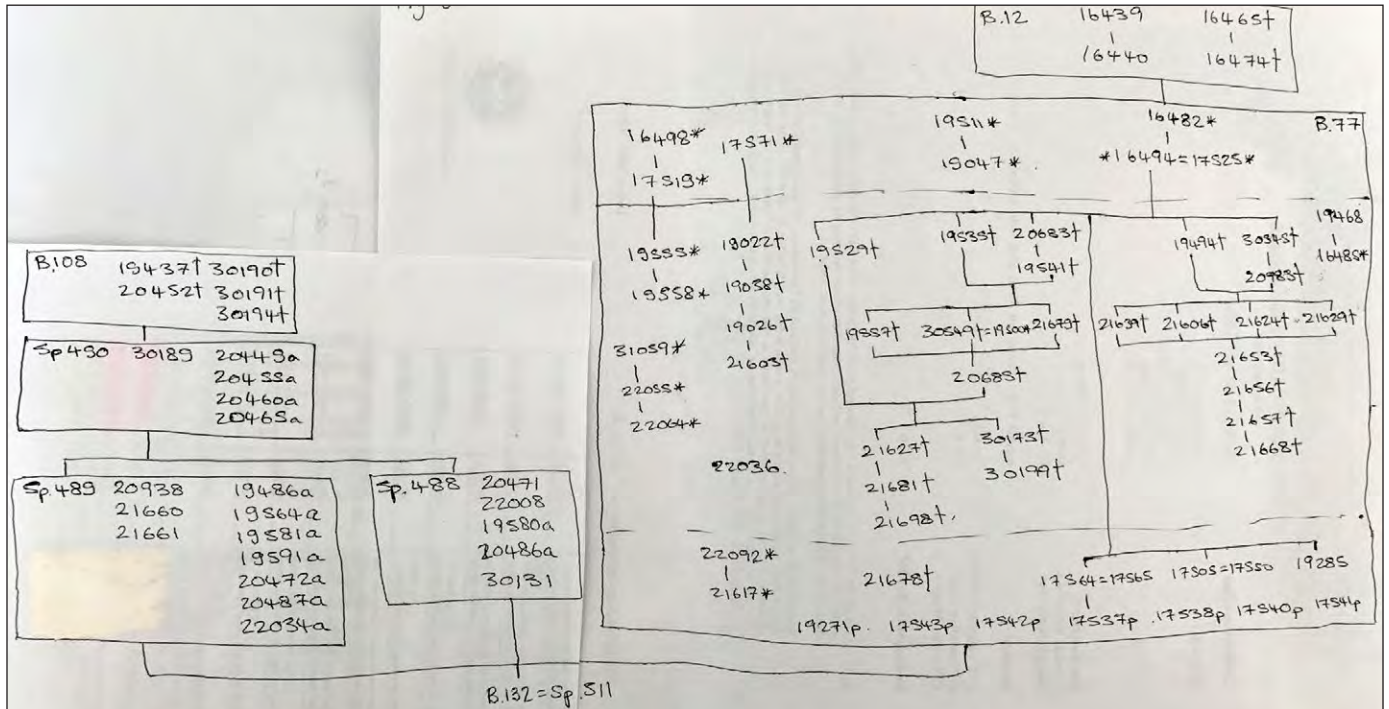 B.12 16439 16465†
16440 16474†
B.77
16498* 17571* 19511* 16482*
17519* 19047* *16494=17525*
19553* 18022† 19529† 19535† 20683† 19494† 30345† 19468
19558* 19038† 19541† 20983† 16485*
19026† 19557† 30549†=19500* 21679† 21639† 21606† 21624† - 21629†
31059* 21603† 20685† 21653†
22055* 21656†
22064* 21627† 30173† 21657†
22036. 21681† 30199† 21668†
21698†.
22092* 21678† 17564=17565 17505=17550 19285
21617*
19271p. 17543p 17542p 17537p .17538p 17540p 17541p
B.108 19437† 30190†
20452† 30191†
30194†
Sp 490 30189 20449a
20455a
20460a
20465a
Sp.489 20938 19486a
21660 19564a
21661 19581a
19591a
20472a
20487a
22034a
Sp.488 20471
22008
19580a
20486a
30131
B.132=Sp.511